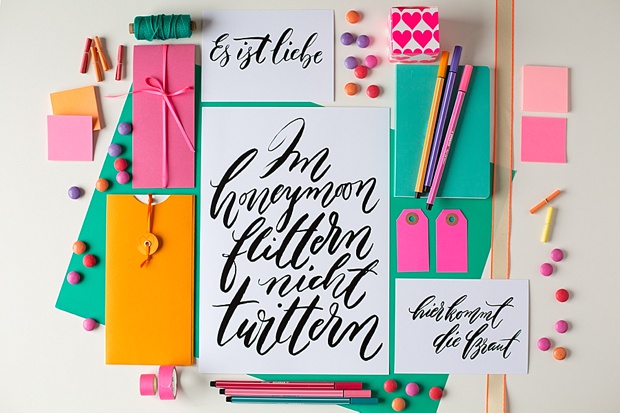 Es ist liebe
Im
honeymoon
flittern
nicht
twittern
hier kommt
die Braut